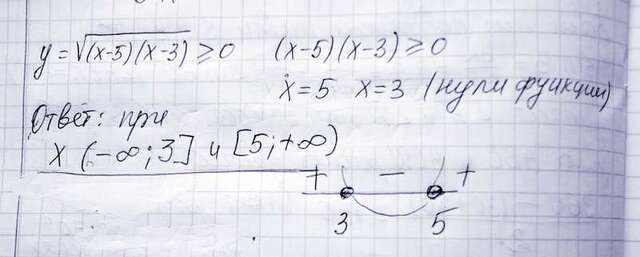 y = √(x-5)(x-3) ≥ 0 (x-5)(x-3) ≥ 0
x = 5 x = 3 (нули функции)
Ответ: при
x (-∞; 3] и [5; +∞)
+ - +
3 5